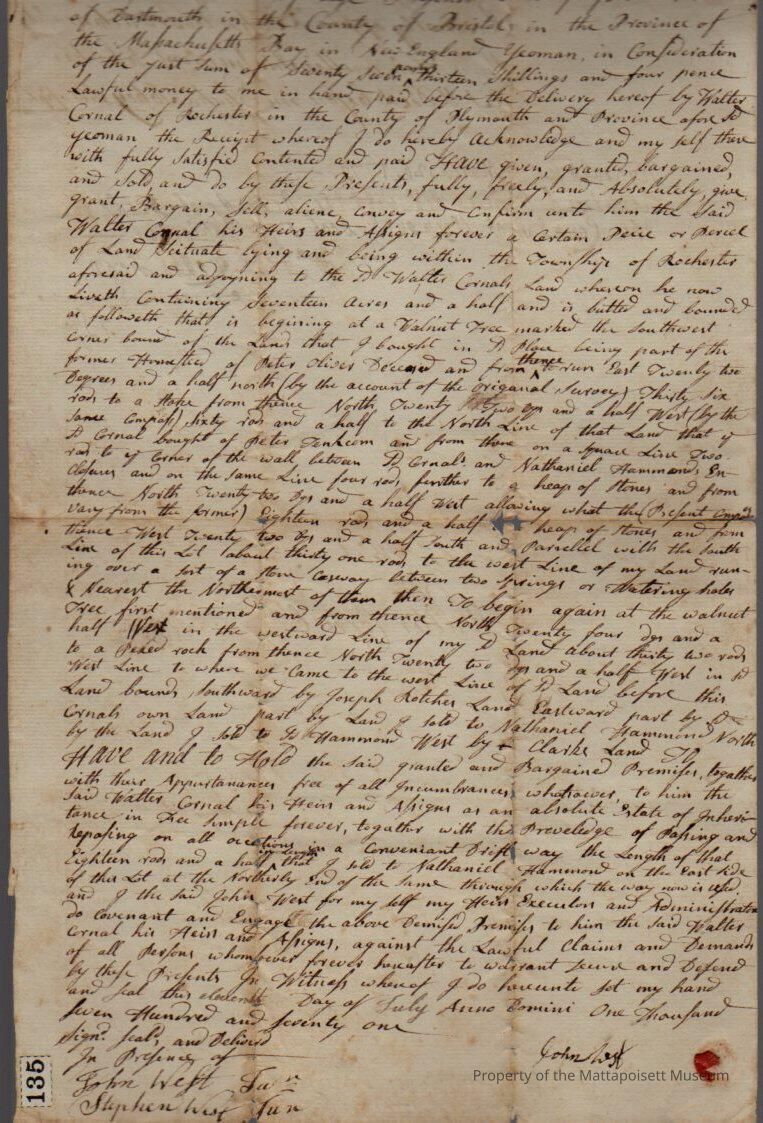 of Dartmouth in the County of Bristol in the Province of
the Massachusetts Bay in New England Yeoman, in Consideration
of the just Sum of Twenty Seven pounds Thirteen Shillings and four pence
Lawful money to me in hand paid before the Delivery hereof by Walter
Cornal of Rochester in the County of Plymouth and Province afore Sd
yeoman the Receipt whereof I do hereby Acknowledge and my self there
with fully Satisfied Contented and paid HAVE given, granted, bargained,
and Sold, and do by these Presents, fully, freely, and Absolutely, give
grant, Bargain, Sell, aliene, Convey and Confirm unto him the Said
Walter Cornal his Heirs and Assigns forever a Certain Peice or Percel
of Land Scituate lying and being within the Township of Rochester
aforesaid and adjoyning to the Sd Walter Cornals Land whereon he now
Liveth Containing Seventeen Acres and a half and is butted and bounded
as followeth that is begining at a Walnut Tree marked the Southwest
Corner bound of the Land that I bought in Sd Place being part of the
former Homested of Peter Oliver Deceased and from thence to run East Twenty two
Degrees and a half north (by the account of the origanal Survey) Thirty Six
rods to a Stake from thence North, Twenty Two Dgs and a half West (by the
Same Compass) Sixty rods and a half to the North Line of that Land that ye
Sd Cornal bought of Peter and from there on a Square Line Two
rods to ye Corner of the wall between Sd Cornals and Nathaniel Hammonds En-
closures and on the Same Line four rods further to a heap of Stones and from
thence North Twenty two Dgs and a half West allowing what the (Present Compass
vary from the former) Eighteen rods and a half to a heap of Stones and from
thence West Twenty two Dgs and a half South and Parrellel with the South
Line of this Lot (about thirty one rods to the west Line of my Land run-
ing over a Sort of a Stone Coseway between two Springs or Watering holes
& Nearest the Northermost of them then To begin again at the walnut
Tree first mentioned and from thence North Twenty four dgs and a
half West in the westward Line of my Sd Land about thirty two rods
to a Peked rock from thence North Twenty two Dgs and a half West in Sd
West Line to where we Came to the west Line of Sd Land before this
Land bounds Southward by Joseph Rotches Land Eastward part by Sd
Cornals own Land part by Land I sold to Nathaniel Hammond North
by the Land I sold to Sd Hammond West by Clarks Land To
HAVE and to Hold the Said granted and Bargained Premises, togather
with their Appurtanances free of all Incumbrances whatsoever, to him the
Said Walter Cornal his Heirs and Assigns as an absolute Estate of Inheri-
tance in Fee Simple forever, togather with the Preveledge of Passing and
Repasing on all occations in a Conveniant Drift way the Length of that
Eighteen rods and a half in length that I sold to Nathaniel Hammond on the East Side
of this Lot at the Northerly End of the Same through which the way now is used.
and I the Said John West for my self my Heirs Executors and Administrators
do Covenant and Engage the above Demised Premises to him the Said Walter
Cornal his Heirs and Assigns, against the Lawful Claims and Demands
of all Persons whomsoever forever hereafter to warrant Secure and Defend
by these Presents In Witness whereof I do hereunto Set my hand
and Seal this eleventh Day of July Anno Domini One Thousand
Seven Hundred and Seventy one
Signd. Seald, and Deliverd
In Presence of
John West
John West Junr
Stephen West Jun
135
Property of the Mattapoisett Museum